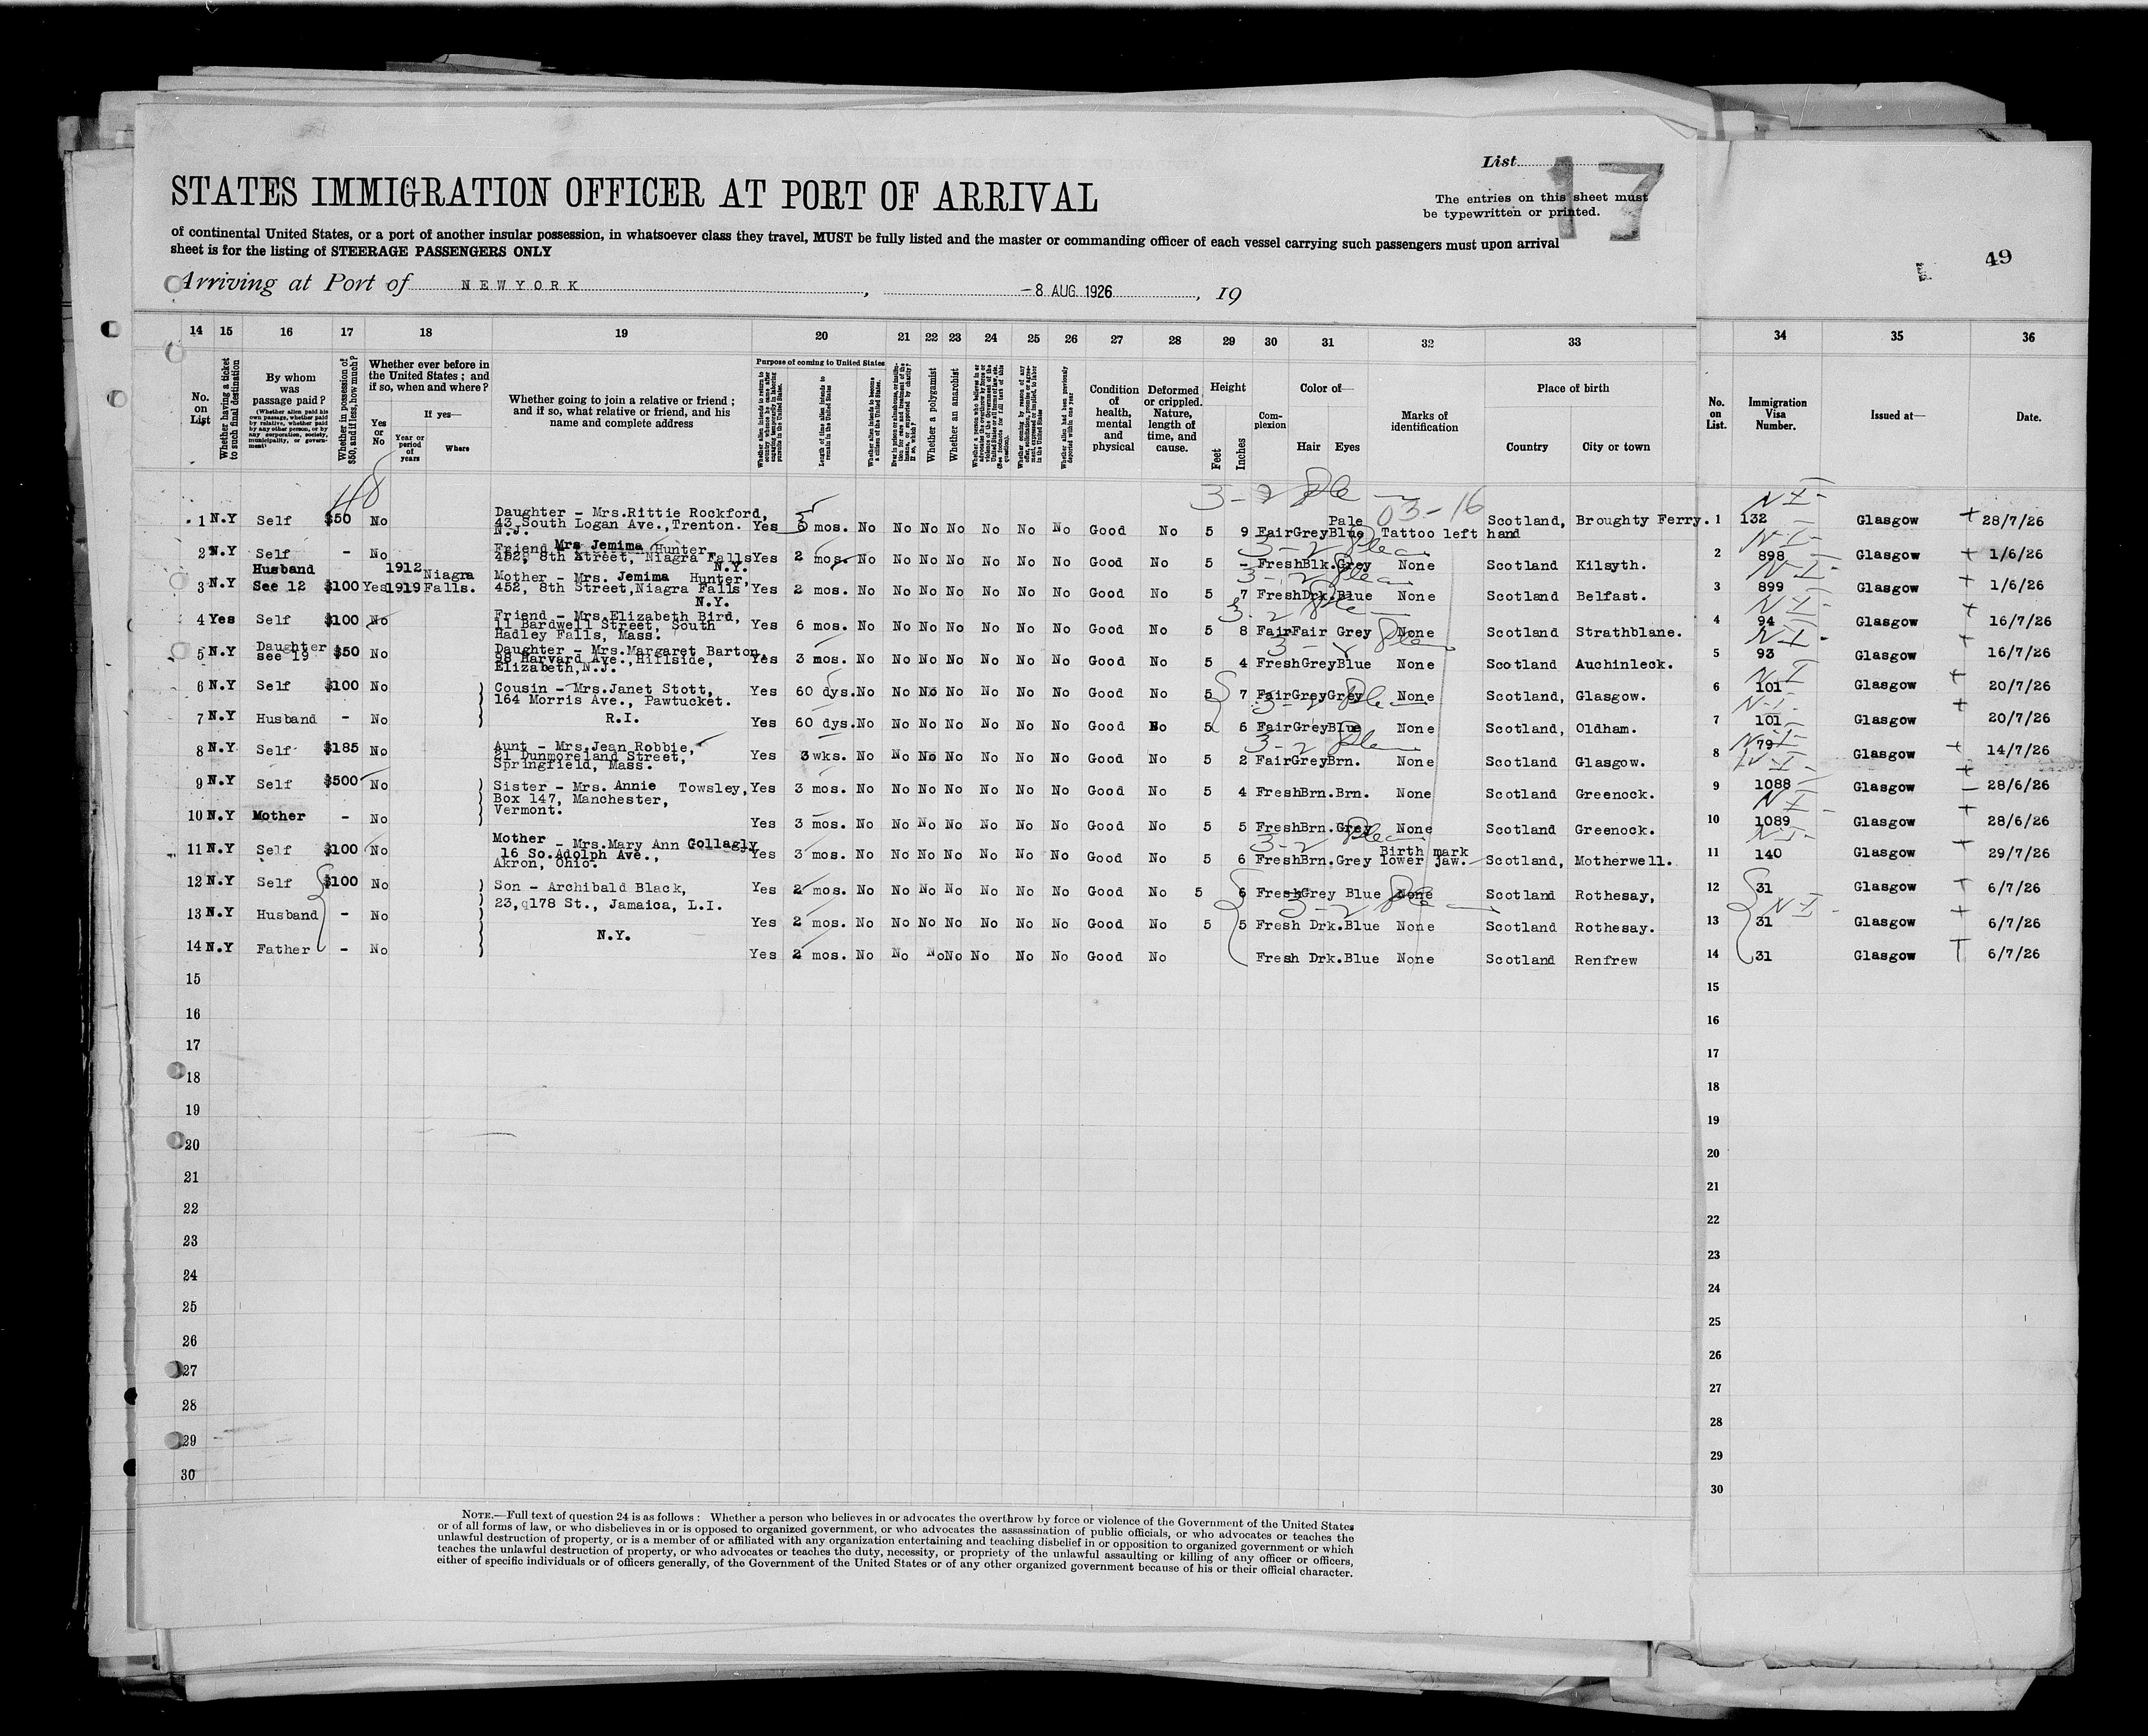 List 17
STATES IMMIGRATION OFFICER AT PORT OF ARRIVAL
The entries on this sheet must
be typewritten or printed.
of continental United States, or a port of another insular possession, in whatsoever class they travel, MUST be fully listed and the master or commanding officer of each vessel carrying such passengers must upon arrival
sheet is for the listing of STEERAGE PASSENGERS ONLY
49
Arriving at Port of NEWYORK, -8 AUG. 1926, 19
14 15 16 17 18 19 20 21 22 23 24 25 26 27 28 29 30 31 32 33 34 35 36
No. on List
Whether having a ticket to such final destination
By whom was passage paid?
(Whether alien paid his own passage, whether paid by relative, whether paid by any other person, or by any corporation, society, municipality, or government)
Whether in possession of $50, and if less, how much?
Whether ever before in the United States; and if so, when and where?
Yes or No
If yes—
Year or period of years
Where
Whether going to join a relative or friend; and if so, what relative or friend, and his name and complete address
Purpose of coming to United States
Length of time alien intends to remain in the United States
Whether alien intends to become a citizen of the United States.
Whether a polygamist
Whether an anarchist
Condition of health, mental and physical
Deformed or crippled. Nature, length of time, and cause.
Height
Feet Inches
Complexion
Color of—
Hair Eyes
Marks of identification
Place of birth
Country City or town
No. on List.
Immigration Visa Number.
Issued at—
Date.
48
3-2 03-16
1 N.Y Self $50 No Daughter - Mrs.Rittie Rockford, 43 South Logan Ave.,Trenton. N.J. Yes mos. No No No No No No No Good No 5 9 Fair Grey Pale Blue Tattoo left hand Scotland, Broughty Ferry. 1 132 Glasgow 28/7/26
2 N.Y Self - No Friend Mrs Jemima Hunter, 452, 8th Street, Niagra Falls N.Y. Yes 2 mos. No No No No No No No Good No 5 - Fresh Blk. Grey None Scotland Kilsyth. 2 898 Glasgow 1/6/26
3 N.Y Husband See 12 $100 Yes 1912 1919 Niagra Falls. Mother - Mrs. Jemima Hunter, 452, 8th Street,Niagra Falls N.Y. Yes 2 mos. No No No No No No No Good No 5 7 Fresh Drk. Blue None Scotland Belfast. 3 899 Glasgow 1/6/26
4 Yes Self $100 No Friend - Mrs.Elizabeth Bird, 11 Bardwell Street, South Hadley Falls, Mass. Yes 6 mos. No No No No No No No Good No 5 8 Fair Fair Grey None Scotland Strathblane. 4 94 Glasgow 16/7/26
5 N.Y Daughter see 19 $50 No Daughter - Mrs.Margaret Barton, 98 Harvard Ave.,Hillside, Elizabeth,N.J. Yes 3 mos. No No No No No No No Good No 5 4 Fresh Grey Blue None Scotland Auchinleck. 5 93 Glasgow 16/7/26
6 N.Y Self $100 No Cousin - Mrs.Janet Stott, 164 Morris Ave., Pawtucket. Yes 60 dys. No No No No No No No Good No 5 7 Fair Grey Grey None Scotland, Glasgow. 6 101 Glasgow 20/7/26
7 N.Y Husband - No R.I. Yes 60 dys. No No No No No No No Good No 5 6 Fair Grey Blue None Scotland, Oldham. 7 101 Glasgow 20/7/26
8 N.Y Self $185 No Aunt - Mrs.Jean Robbie, 21 Dunmoreland Street, Springfield, Mass. Yes 3 wks. No No No No No No No Good No 5 2 Fair Grey Brn. None Scotland Glasgow. 8 79 Glasgow 14/7/26
9 N.Y Self $500 No Sister - Mrs. Annie Towsley, Box 147, Manchester, Vermont. Yes 3 mos. No No No No No No No Good No 5 4 Fresh Brn. Brn. None Scotland Greenock. 9 1088 Glasgow 28/6/26
10 N.Y Mother - No Yes 3 mos. No No No No No No No Good No 5 5 Fresh Brn. Grey None Scotland Greenock. 10 1089 Glasgow 28/6/26
11 N.Y Self $100 No Mother - Mrs.Mary Ann Gollagly 16 So.Adolph Ave., Akron, Ohio. Yes 3 mos. No No No No No No No Good No 5 6 Fresh Brn. Grey Birth mark lower jaw. Scotland, Motherwell. 11 140 Glasgow 29/7/26
12 N.Y Self $100 No Son - Archibald Black, 23, 178 St., Jamaica, L.I. Yes 2 mos. No No No No No No No Good No 5 6 Fresh Grey Blue None Scotland Rothesay, 12 31 Glasgow 6/7/26
13 N.Y Husband - No N.Y. Yes 2 mos. No No No No No No No Good No 5 5 Fresh Drk. Blue None Scotland Rothesay. 13 31 Glasgow 6/7/26
14 N.Y Father - No Yes 2 mos. No No No No No No No Good No Fresh Drk. Blue None Scotland Renfrew 14 31 Glasgow 6/7/26
15 15
16 16
17 17
18 18
19 19
20 20
21 21
22 22
23 23
24 24
25 25
26 26
27 27
28 28
29 29
30 30
NOTE.—Full text of question 24 is as follows: Whether a person who believes in or advocates the overthrow by force or violence of the Government of the United States
or of all forms of law, or who disbelieves in or is opposed to organized government, or who advocates the assassination of public officials, or who advocates or teaches the
unlawful destruction of property, or is a member of or affiliated with any organization entertaining and teaching disbelief in or opposition to organized government or which
teaches the unlawful destruction of property, or who advocates or teaches the duty, necessity, or propriety of the unlawful assaulting or killing of any officer or officers,
either of specific individuals or of officers generally, of the Government of the United States or of any other organized government because of his or their official character.